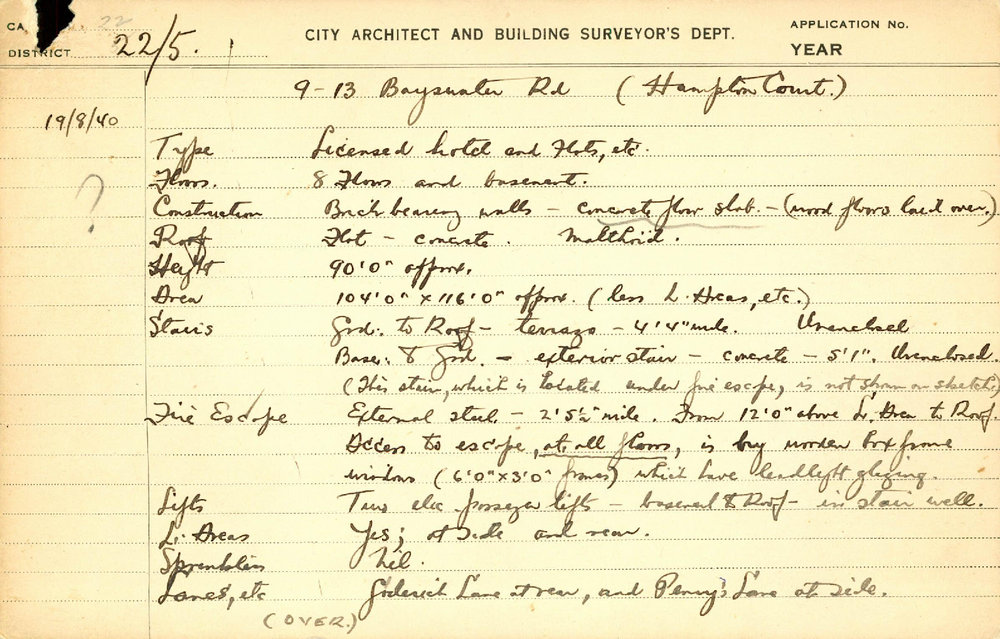 CA 22
CITY ARCHITECT AND BUILDING SURVEYOR'S DEPT.
APPLICATION No.
DISTRICT 22/5.
YEAR
9-13 Bayswater Rd (Hampton Court.)
19/8/40
Type Licensed hotel and Flats, etc.
Floors. 8 Floors and basement.
?
Construction Brick bearing walls - concrete floor slab. - (wood floors laid over.)
Roof Flat - concrete. Malthoid.
Height 90'0" approx.
Area 104'0" x 116'0" approx. (less L. Areas, etc.)
Stairs Grd. to Roof - terrazo - 4'4" wide. Unenclosed
Base. to Grd. - exterior stair - concrete - 5'1". Unenclosed.
(This stair, which is located under fire escape, is not shown on sketch.)
Fire Escape External steel - 2'5½" wide. From 12'0" above L. Area to Roof.
Access to escape, at all floors, is by wooden box frame
windows (6'0"x3'0" frames) which have leadlight glazing.
Lifts Two elec. passenger lifts - basement to Roof - in stair well.
L. Areas Yes; at side and rear.
Sprinklers Nil.
Lanes, etc Goderich Lane at rear, and Penny's Lane at side.
(OVER.)